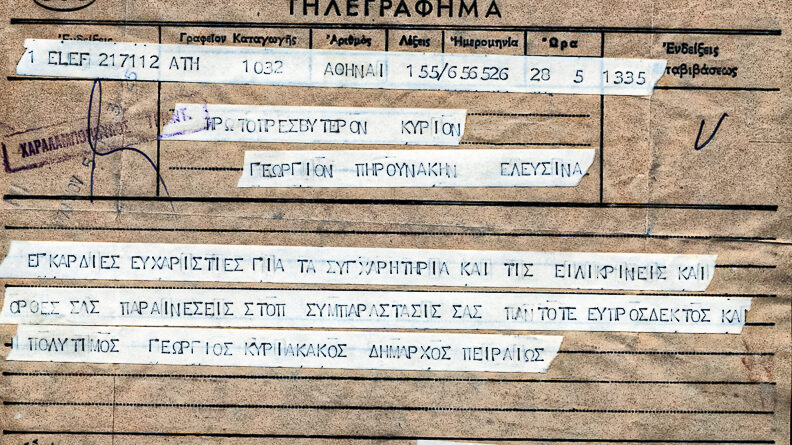 ΤΗΛΕΓΡΑΦΗΜΑ
Ἐνδείξεις Γραφεῖον Καταγωγῆς Ἀριθμός Λέξεις Ἡμερομηνία Ὥρα Ἐνδείξεις
1 ELEF 217112 ΑΤΗ 1032 ΑΘΗΝΑΙ 155/656526 28 5 1335 ταβιβάσεως
ΠΡΩΤΟΠΡΕΣΒΥΤΕΡΟΝ ΚΥΡΙΟΝ
ΧΑΡΑΛΑΜΠΟΠΟΥΛΟΣ
ΓΕΩΡΓΙΟΝ ΠΗΡΟΥΝΑΚΗΝ ΕΛΕΥΣΙΝΑ
ΕΓΚΑΡΔΙΕΣ ΕΥΧΑΡΙΣΤΙΕΣ ΓΙΑ ΤΑ ΣΥΓΧΑΡΗΤΗΡΙΑ ΚΑΙ ΤΙΣ ΕΙΛΙΚΡΙΝΕΙΣ ΚΑΙ
ΟΡΘΕΣ ΣΑΣ ΠΑΡΑΙΝΕΣΕΙΣ ΣΤΟΠ ΣΥΜΠΑΡΑΣΤΑΣΙΣ ΣΑΣ ΠΑΝΤΟΤΕ ΕΥΠΡΟΣΔΕΚΤΟΣ ΚΑΙ
ΠΟΛΥΤΙΜΟΣ ΓΕΩΡΓΙΟΣ ΚΥΡΙΑΚΑΚΟΣ ΔΗΜΑΡΧΟΣ ΠΕΙΡΑΙΩΣ